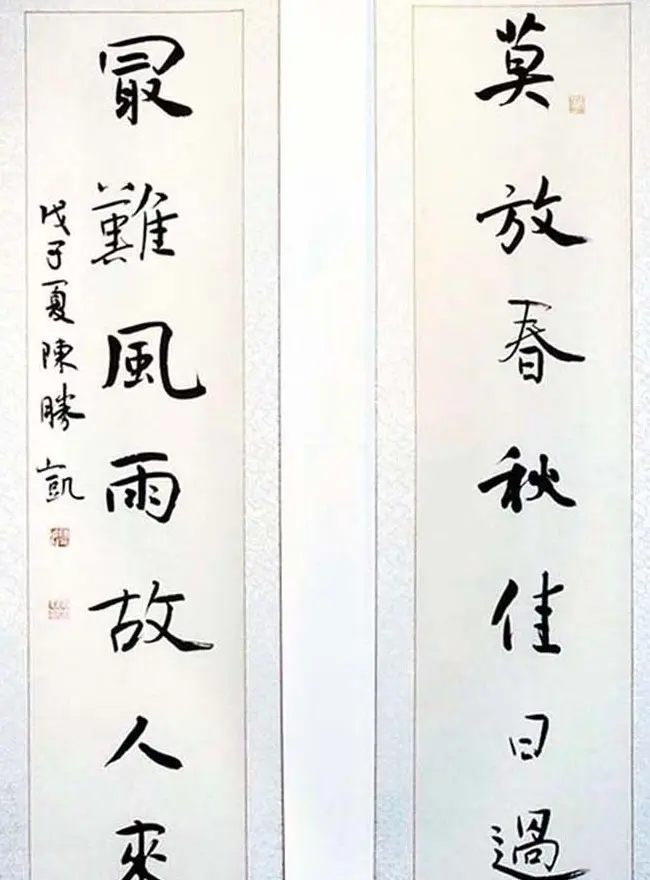 莫放春秋佳日過
冣難風雨故人來
戊子夏陳勝凱